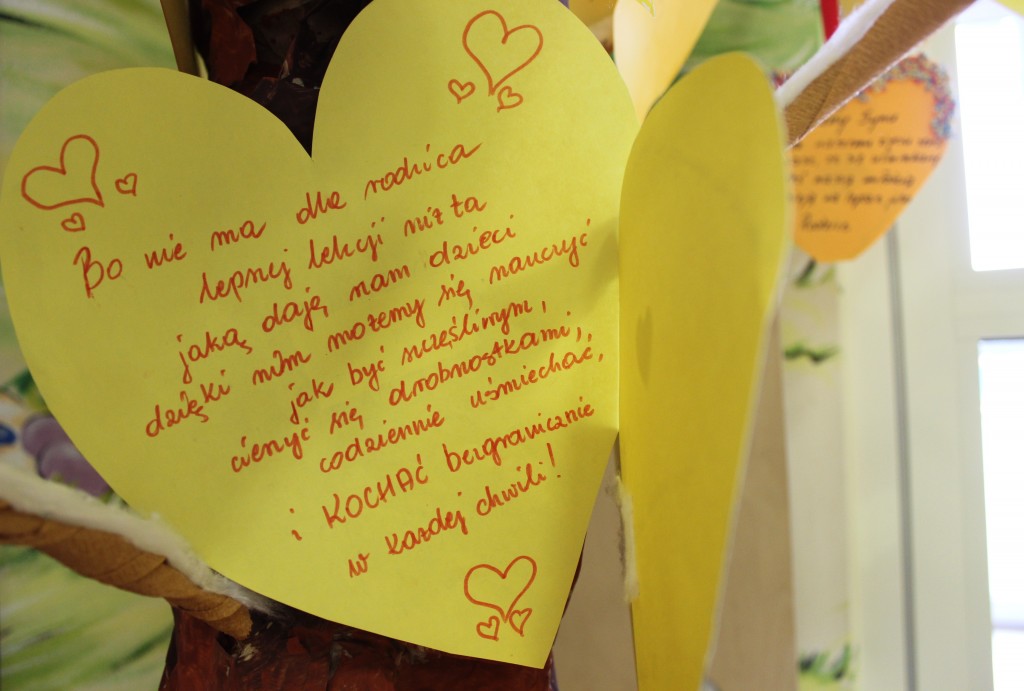 Bo nie ma dla rodzica
lepszej lekcji niż ta
jaką dają nam dzieci
dzięki nim możemy się nauczyć
jak być szczęśliwym,
cieszyć się drobnostkami,
codziennie uśmiechać,
i KOCHAĆ bezgranicznie
w każdej chwili!